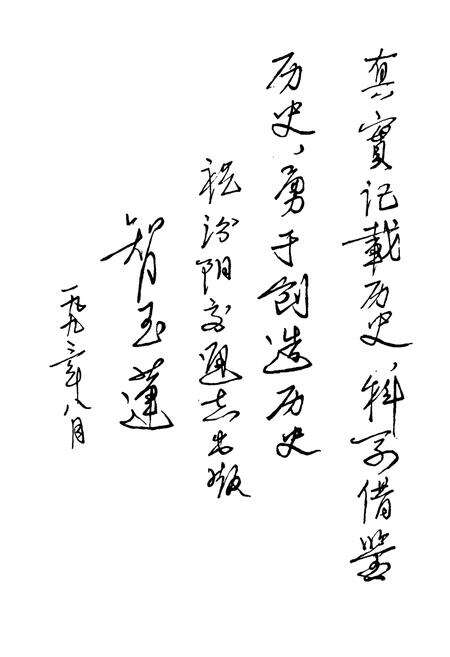 真實记載历史，科学借鉴
历史，勇于创造历史
祝汾阳交通志出版
智玉蓮
一九九三年八月